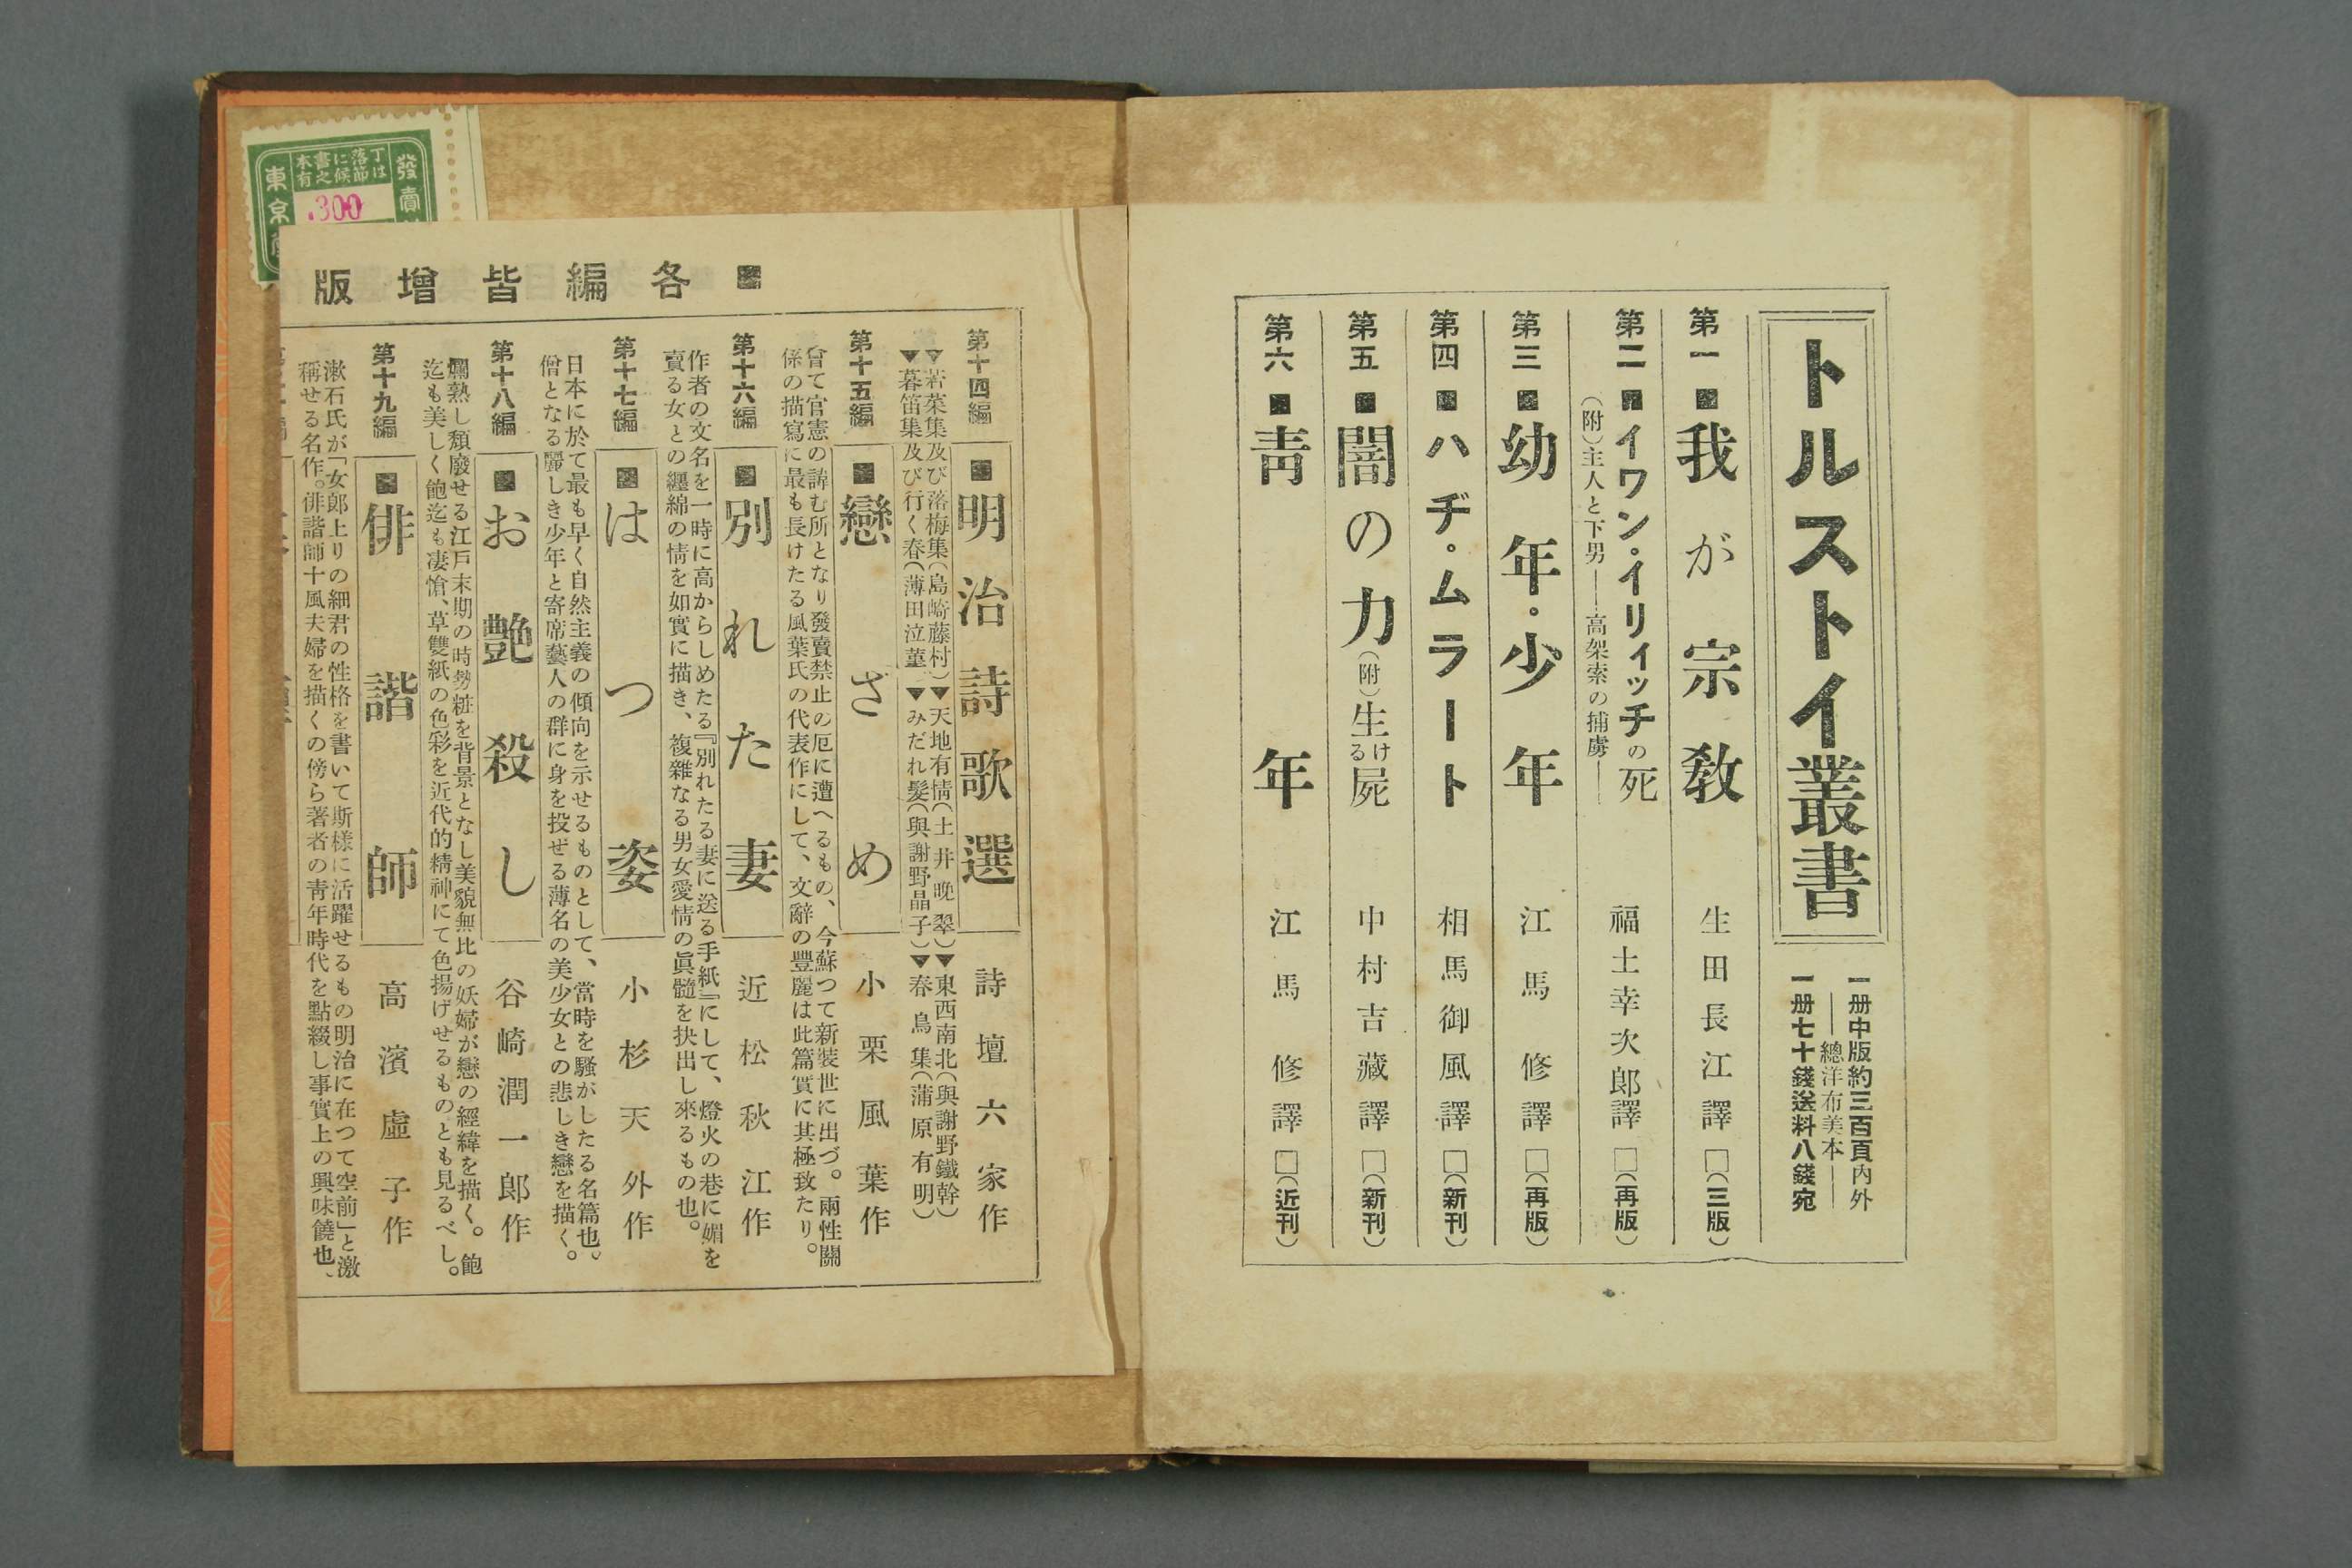 トルストイ叢書
一册中版約三百頁内外
――總洋布美本――
一册七十錢送料八錢宛
第一■我が宗教 生田長江譯□(三版)
第二■イワン・イリイッチの死 福士幸次郎譯□(再版)
(附)主人と下男――高架索の捕虜――
第三■幼年・少年 江馬修譯□(再版)
第四■ハヂ・ムラート 相馬御風譯□(新刊)
第五■闇の力(附)生ける屍 中村吉藏譯□(新刊)
第六■靑年 江馬修譯□(近刊)
■各編皆增版
第十四編 ■明治詩歌選 詩壇六家作
▼若菜集及び落梅集(島崎藤村)▼天地有情(土井晩翠)▼東西南北(與謝野鐵幹)
▼暮笛集及び行く春(薄田泣菫)▼みだれ髮(與謝野晶子)▼春鳥集(蒲原有明)
第十五編 ■戀ざめ 小栗風葉作
曾て官憲の諱む所となり發賣禁止の厄に遭へるもの、今蘇つて新裝世に出づ。兩性關
係の描寫に最も長けたる風葉氏の代表作にして、文辭の豐麗は此篇實に其極致たり。
第十六編 ■別れた妻 近松秋江作
作者の文名を一時に高からしめたる『別れたる妻に送る手紙』にして、燈火の巷に媚を
賣る女との纒綿の情を如實に描き、複雜なる男女愛情の眞髓を抉出し來るもの也。
第十七編 ■はつ姿 小杉天外作
日本に於て最も早く自然主義の傾向を示せるものとして、當時を騷がしたる名篇也。
僧となる麗しき少年と寄席藝人の群に身を投ぜる薄名の美少女との悲しき戀を描く。
第十八編 ■お艶殺し 谷崎潤一郎作
爛熟し頽廢せる江戸末期の時勢粧を背景となし美貌無比の妖婦が戀の經緯を描く。飽
迄も美しく飽迄も凄愴、草雙紙の色彩を近代的精神にて色揚げせるものとも見るべし。
第十九編 ■俳諧師 高濱虛子作
漱石氏が「女郎上りの細君の性格を書いて斯樣に活躍せるもの明治に在つて空前」と激
稱せる名作。俳諧師十風夫婦を描くの傍ら著者の靑年時代を點綴し事實上の興味饒也、
發賣
本書に落丁
有之候節は
.300
東京